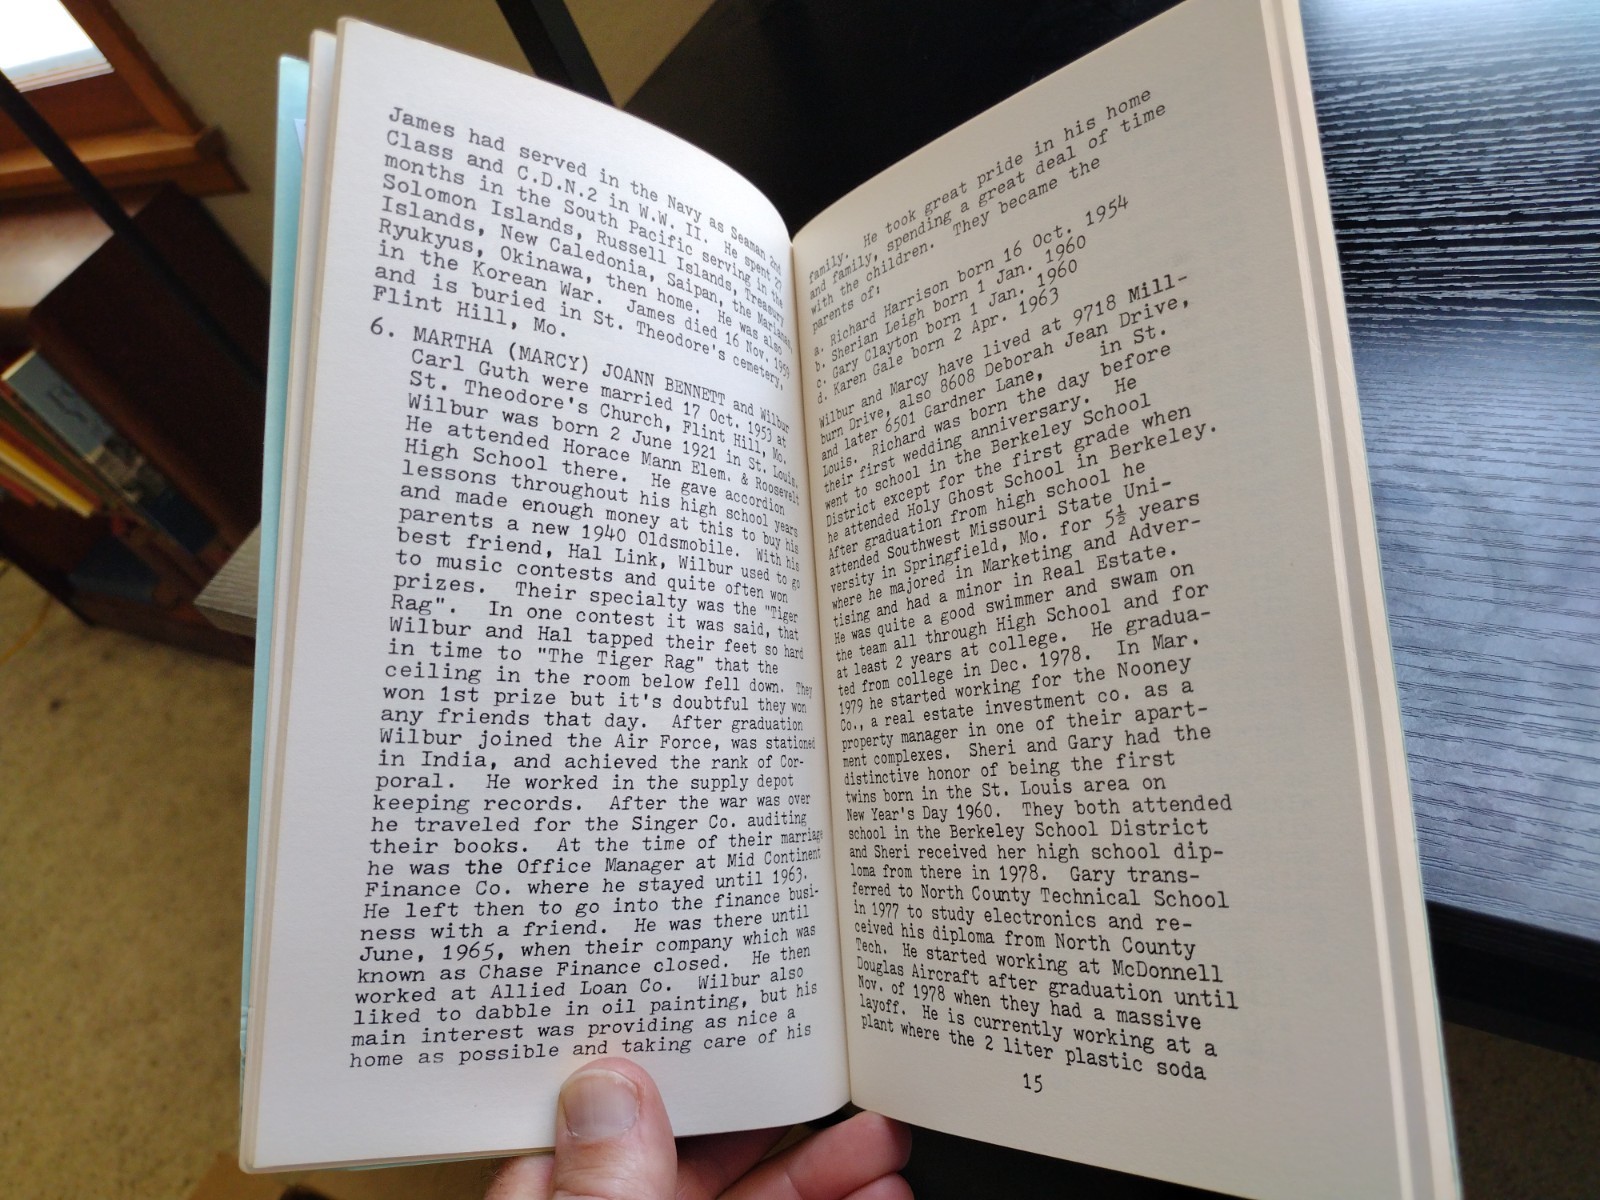 James had served in the Navy as Seaman 2nd
Class and C.D.N.2 in W.W. II. He spent 27
months in the South Pacific serving in the
Solomon Islands, Russell Islands, Treasury
Islands, New Caledonia, Saipan, the Marianas,
Ryukyus, Okinawa, then home. He was also
in the Korean War. James died 16 Nov. 1959
and is buried in St. Theodore's cemetery,
Flint Hill, Mo.
6. MARTHA (MARCY) JOANN BENNETT and Wilbur
Carl Guth were married 17 Oct. 1953 at
St. Theodore's Church, Flint Hill, Mo.
Wilbur was born 2 June 1921 in St. Louis.
He attended Horace Mann Elem. & Roosevelt
High School there. He gave accordion
lessons throughout his high school years
and made enough money at this to buy his
parents a new 1940 Oldsmobile. With his
best friend, Hal Link, Wilbur used to go
to music contests and quite often won
prizes. Their specialty was the "Tiger
Rag". In one contest it was said, that
Wilbur and Hal tapped their feet so hard
in time to "The Tiger Rag" that the
ceiling in the room below fell down. They
won 1st prize but it's doubtful they won
any friends that day. After graduation
Wilbur joined the Air Force, was stationed
in India, and achieved the rank of Cor-
poral. He worked in the supply depot
keeping records. After the war was over
he traveled for the Singer Co. auditing
their books. At the time of their marriage
he was the Office Manager at Mid Continent
Finance Co. where he stayed until 1963.
He left then to go into the finance busi-
ness with a friend. He was there until
June, 1965, when their company which was
known as Chase Finance closed. He then
worked at Allied Loan Co. Wilbur also
liked to dabble in oil painting, but his
main interest was providing as nice a
home as possible and taking care of his
family. He took great pride in his home
and family, spending a great deal of time
with the children. They became the
parents of:
a. Richard Harrison born 16 Oct. 1954
b. Sherian Leigh born 1 Jan. 1960
c. Gary Clayton born 1 Jan. 1960
d. Karen Gale born 2 Apr. 1963
Wilbur and Marcy have lived at 9718 Mill-
burn Drive, also 8608 Deborah Jean Drive,
and later 6501 Gardner Lane, in St.
Louis. Richard was born the day before
their first wedding anniversary. He
went to school in the Berkeley School
District except for the first grade when
he attended Holy Ghost School in Berkeley.
After graduation from high school he
attended Southwest Missouri State Uni-
versity in Springfield, Mo. for 5½ years
where he majored in Marketing and Adver-
tising and had a minor in Real Estate.
He was quite a good swimmer and swam on
the team all through High School and for
at least 2 years at college. He gradua-
ted from college in Dec. 1978. In Mar.
1979 he started working for the Nooney
Co., a real estate investment co. as a
property manager in one of their apart-
ment complexes. Sheri and Gary had the
distinctive honor of being the first
twins born in the St. Louis area on
New Year's Day 1960. They both attended
school in the Berkeley School District
and Sheri received her high school dip-
loma from there in 1978. Gary trans-
ferred to North County Technical School
in 1977 to study electronics and re-
ceived his diploma from North County
Tech. He started working at McDonnell
Douglas Aircraft after graduation until
Nov. of 1978 when they had a massive
layoff. He is currently working at a
plant where the 2 liter plastic soda
15